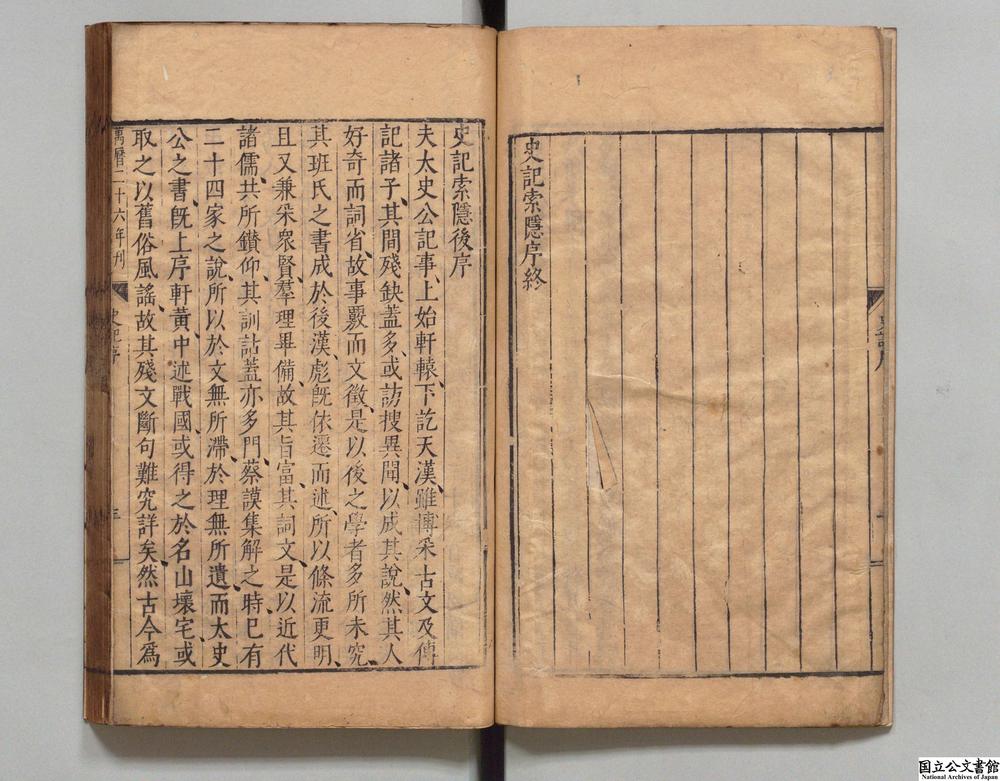 史記索隱序終
史記索隱後序
夫太史公記事、上始軒轅、下訖天漢、雖博采古文及傳
記諸子、其間殘缺蓋多、或訪搜異聞、以成其說、然其人
好奇而詞省、故事覈而文微、是以後之學者多所未究、
其班氏之書、成於後漢、彪既依遷而述、所以條流更明、
且又兼采衆賢、羣理畢備、故其旨富、其詞文、是以近代
諸儒、共所鑚仰、其訓詁蓋亦多門、蔡謨集解之時、已有
二十四家之說、所以於文無所滯、於理無所遺、而太史
公之書、既上序軒黃、中述戰國、或得之於名山壞宅、或
取之以舊俗風謠、故其殘文斷句難究詳矣、然古今爲
萬曆二十六年刊
史記序
國立公文書館
National Archives of Japan